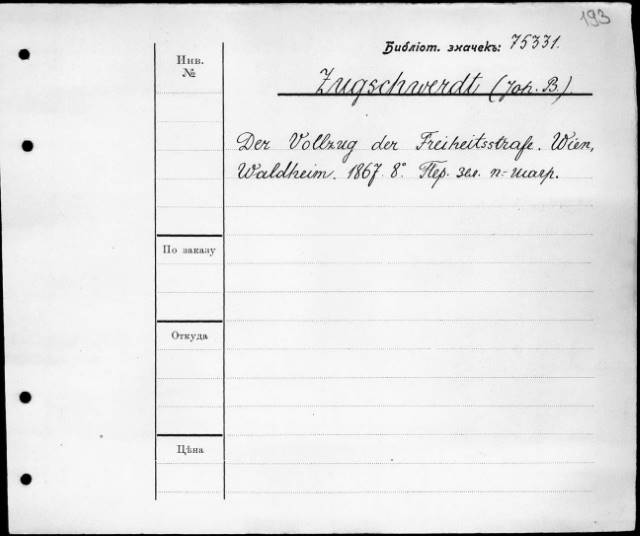 193
Библіот. значекъ: 75331.
Инв.
№
Zugschwerdt (Joh. B.)
Der Vollzug der Freiheitsstrafe. Wien,
Waldheim. 1867. 8°. Пер. зел. п.-шагр.
По заказу
Откуда
Цѣна